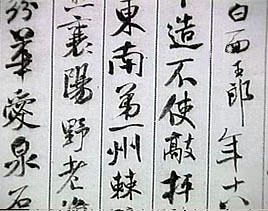 白面郎年十
造不使敲抨
東南第一州棘
襄陽野老
華愛泉石